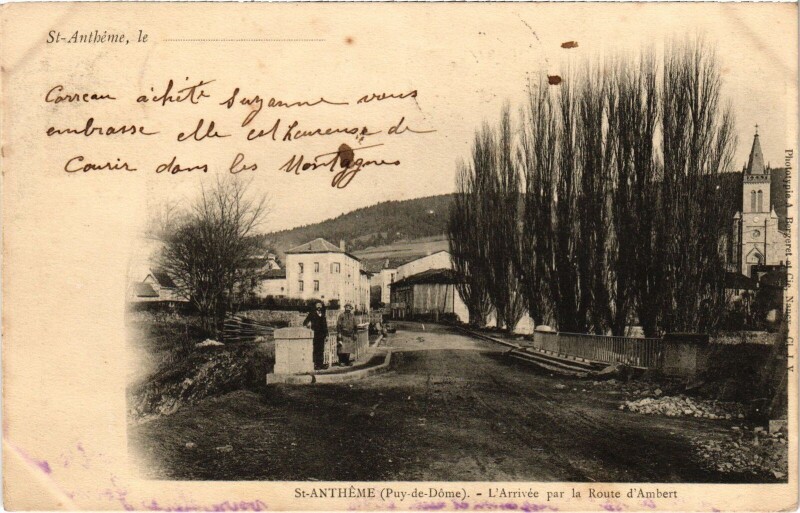 St-Anthême, le
Correau achité Suzanne vous
embrasse elle est heureuse de
Courir dans les Montagnes
Phototypie A. Bergeret et Cie, Nancy. Cl. J. V.
St-ANTHÊME (Puy-de-Dôme). - L'Arrivée par la Route d'Ambert